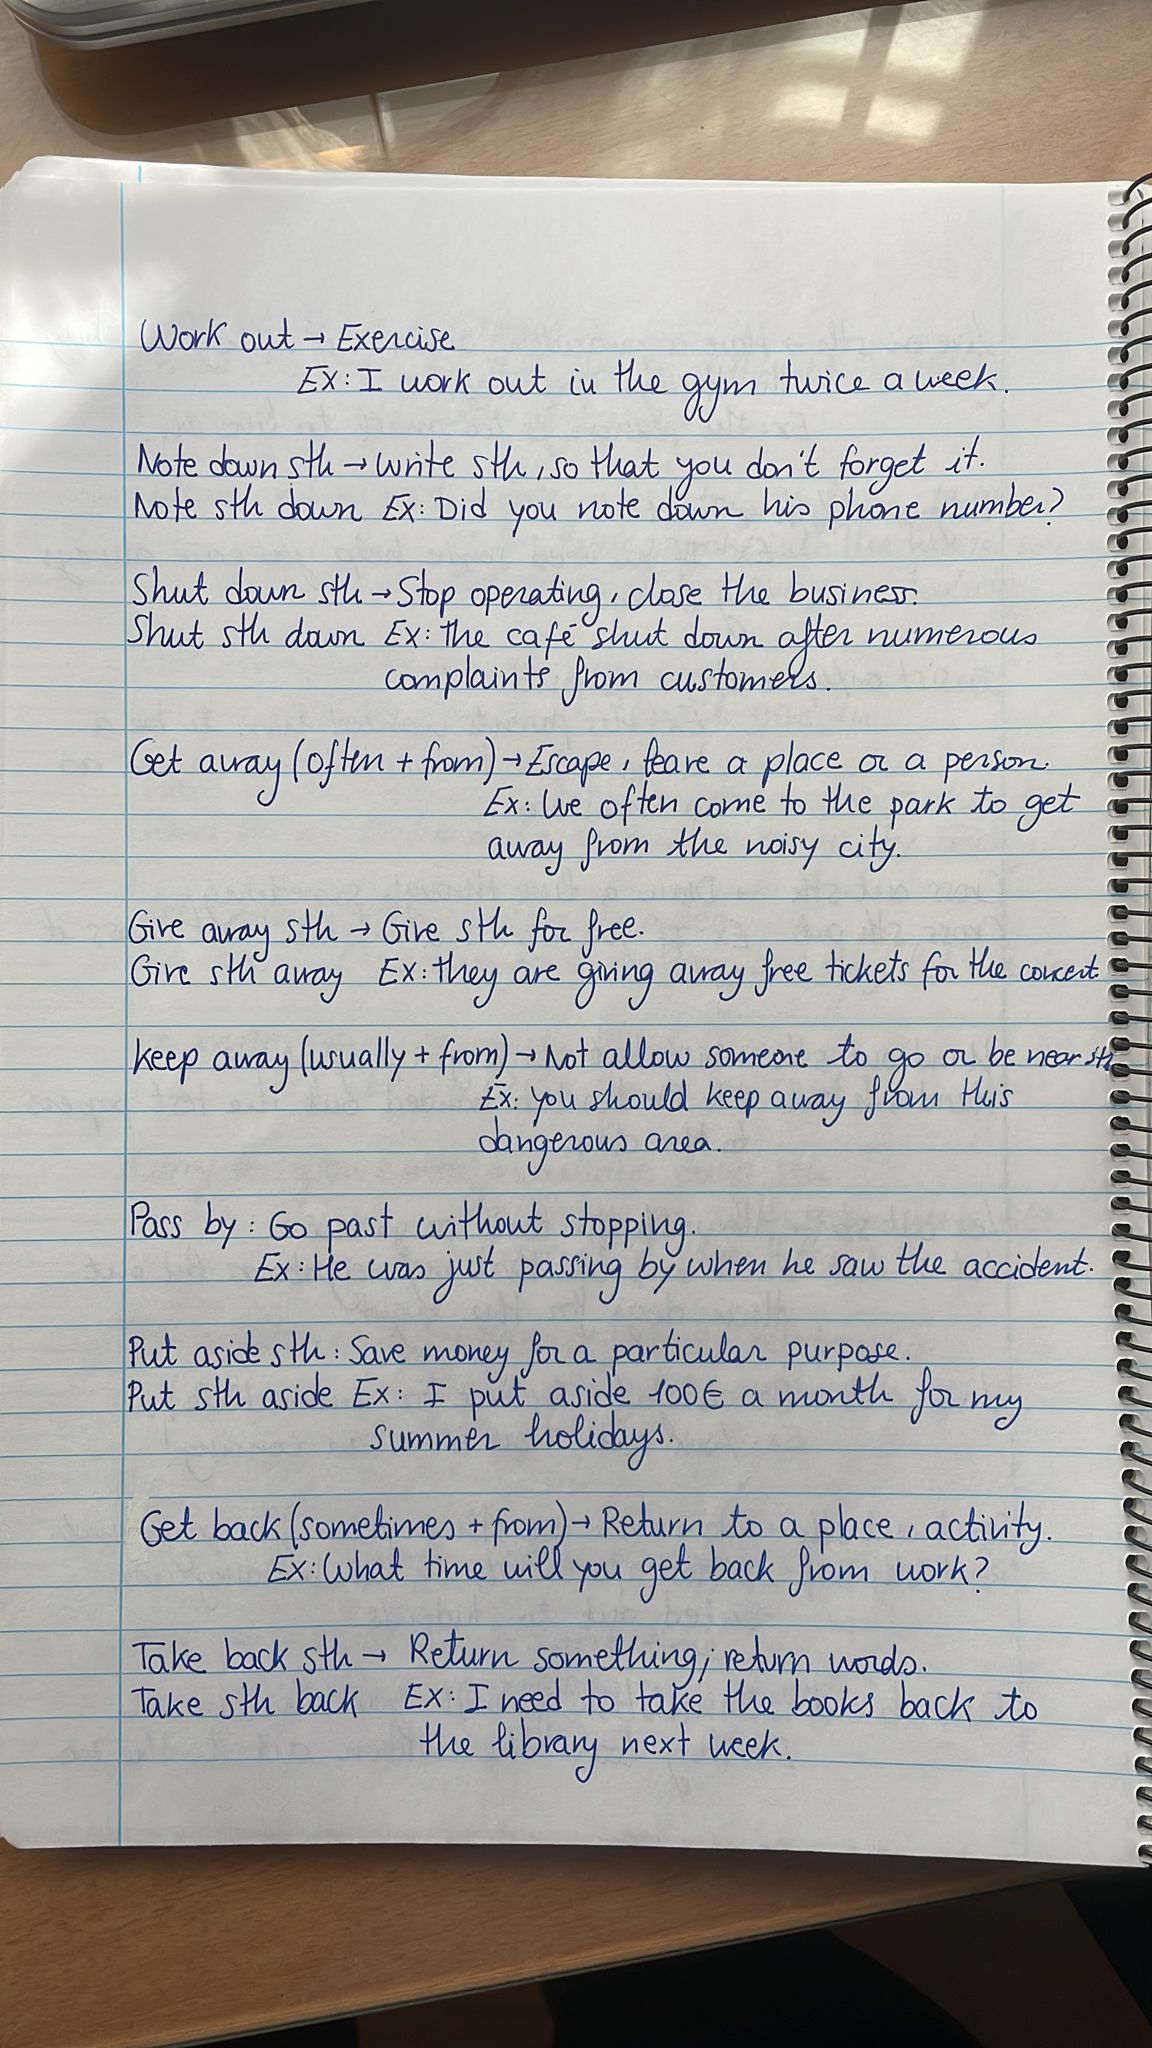 Work out → Exercise
Ex: I work out in the gym twice a week.
Note down sth → Write sth, so that you don't forget it.
Note sth down Ex: Did you note down his phone number?
Shut down sth → Stop operating, close the business.
Shut sth down Ex: The café shut down after numerous
complaints from customers.
Get away (often + from) → Escape, leave a place or a person.
Ex: We often come to the park to get
away from the noisy city.
Give away sth → Give sth for free.
Give sth away Ex: They are giving away free tickets for the concert
Keep away (usually + from) → Not allow someone to go or be near sth
Ex: You should keep away from this
dangerous area.
Pass by: Go past without stopping.
Ex: He was just passing by when he saw the accident.
Put aside sth: Save money for a particular purpose.
Put sth aside Ex: I put aside 100€ a month for my
summer holidays.
Get back (sometimes + from) → Return to a place, activity.
Ex: What time will you get back from work?
Take back sth → Return something; return words.
Take sth back Ex: I need to take the books back to
the library next week.